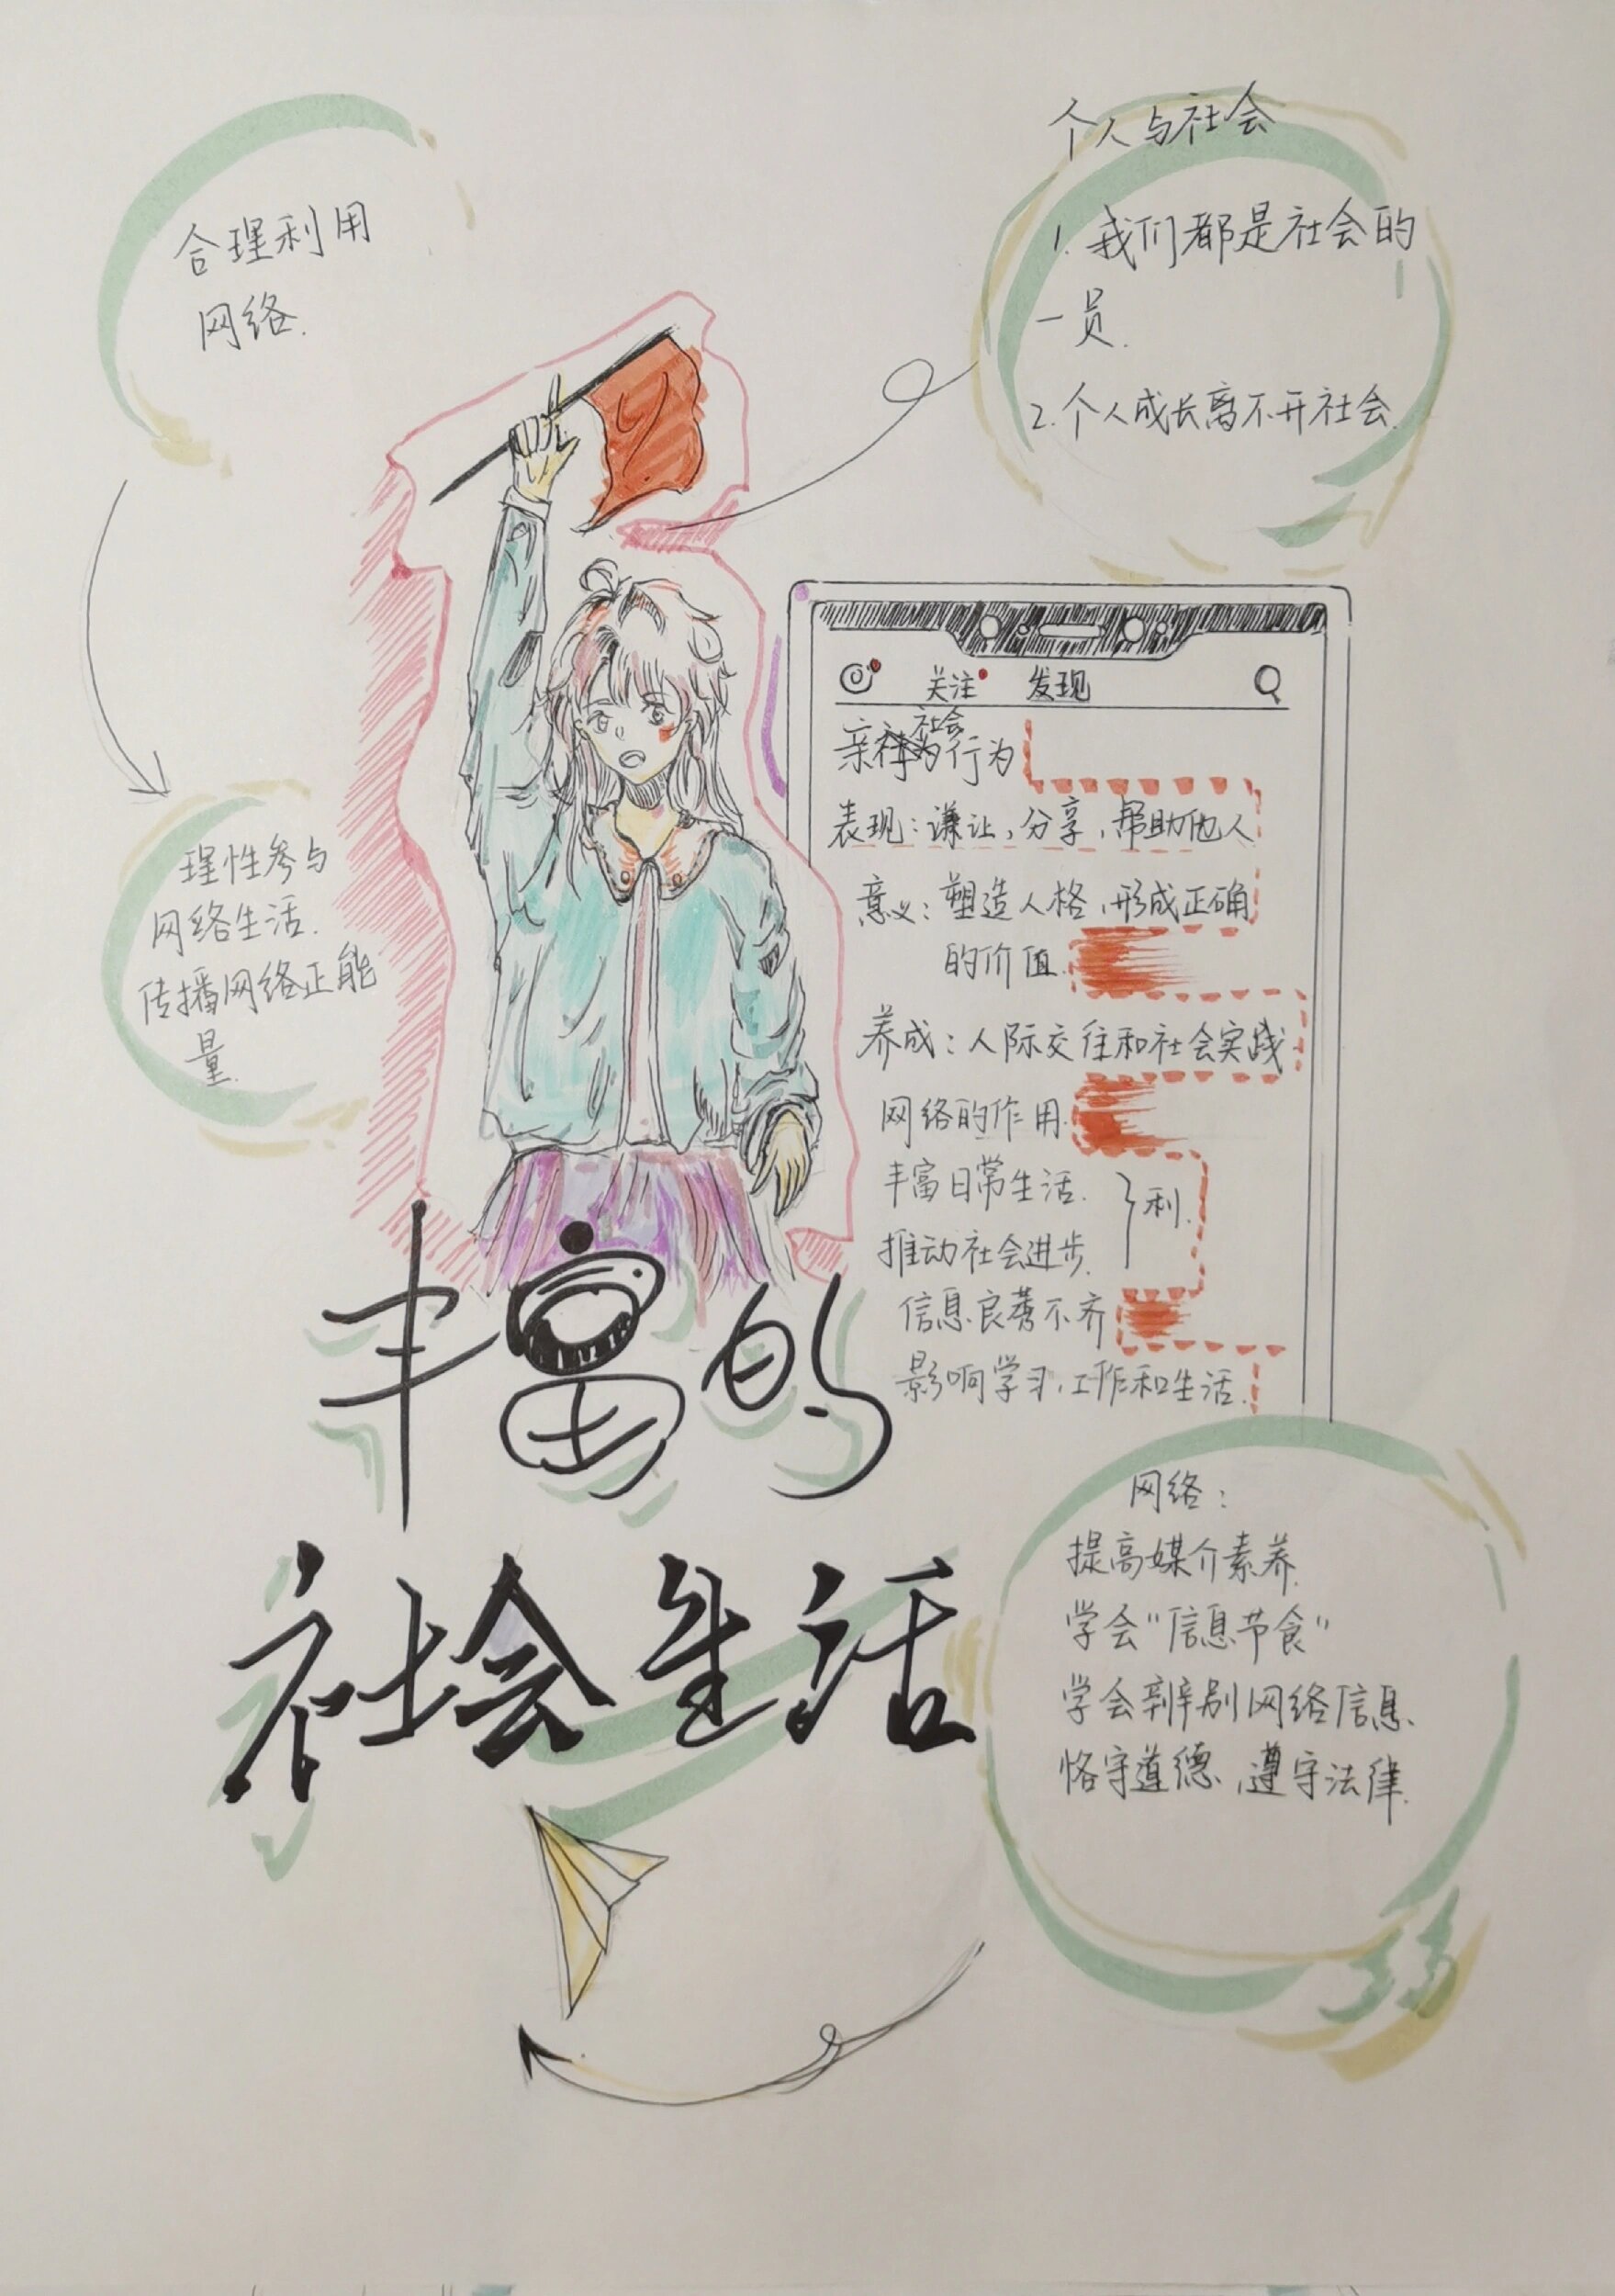 合理利用
网络.
个人与社会
1. 我们都是社会的
一员.
2. 个人成长离不开社会.
理性参与
网络生活.
传播网络正能
量.
关注 发现
亲社会行为
表现：谦让，分享，帮助他人
意义：塑造人格，形成正确
的价值.
养成：人际交往和社会实践
网络的作用.
丰富日常生活.
推动社会进步.
利.
信息良莠不齐
影响学习，工作和生活.
丰富的
社会生活
网络：
提高媒介素养.
学会“信息节食”
学会辨别网络信息.
恪守道德，遵守法律.